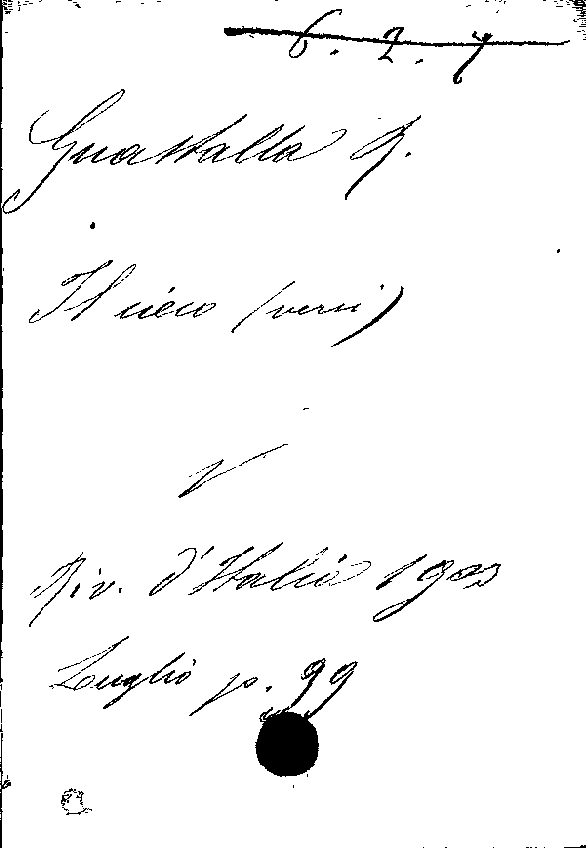 6. 2. 7
Guastalla R.
Il cieco (versi)
V
Riv. d'Italia 1903
Luglio p. 99